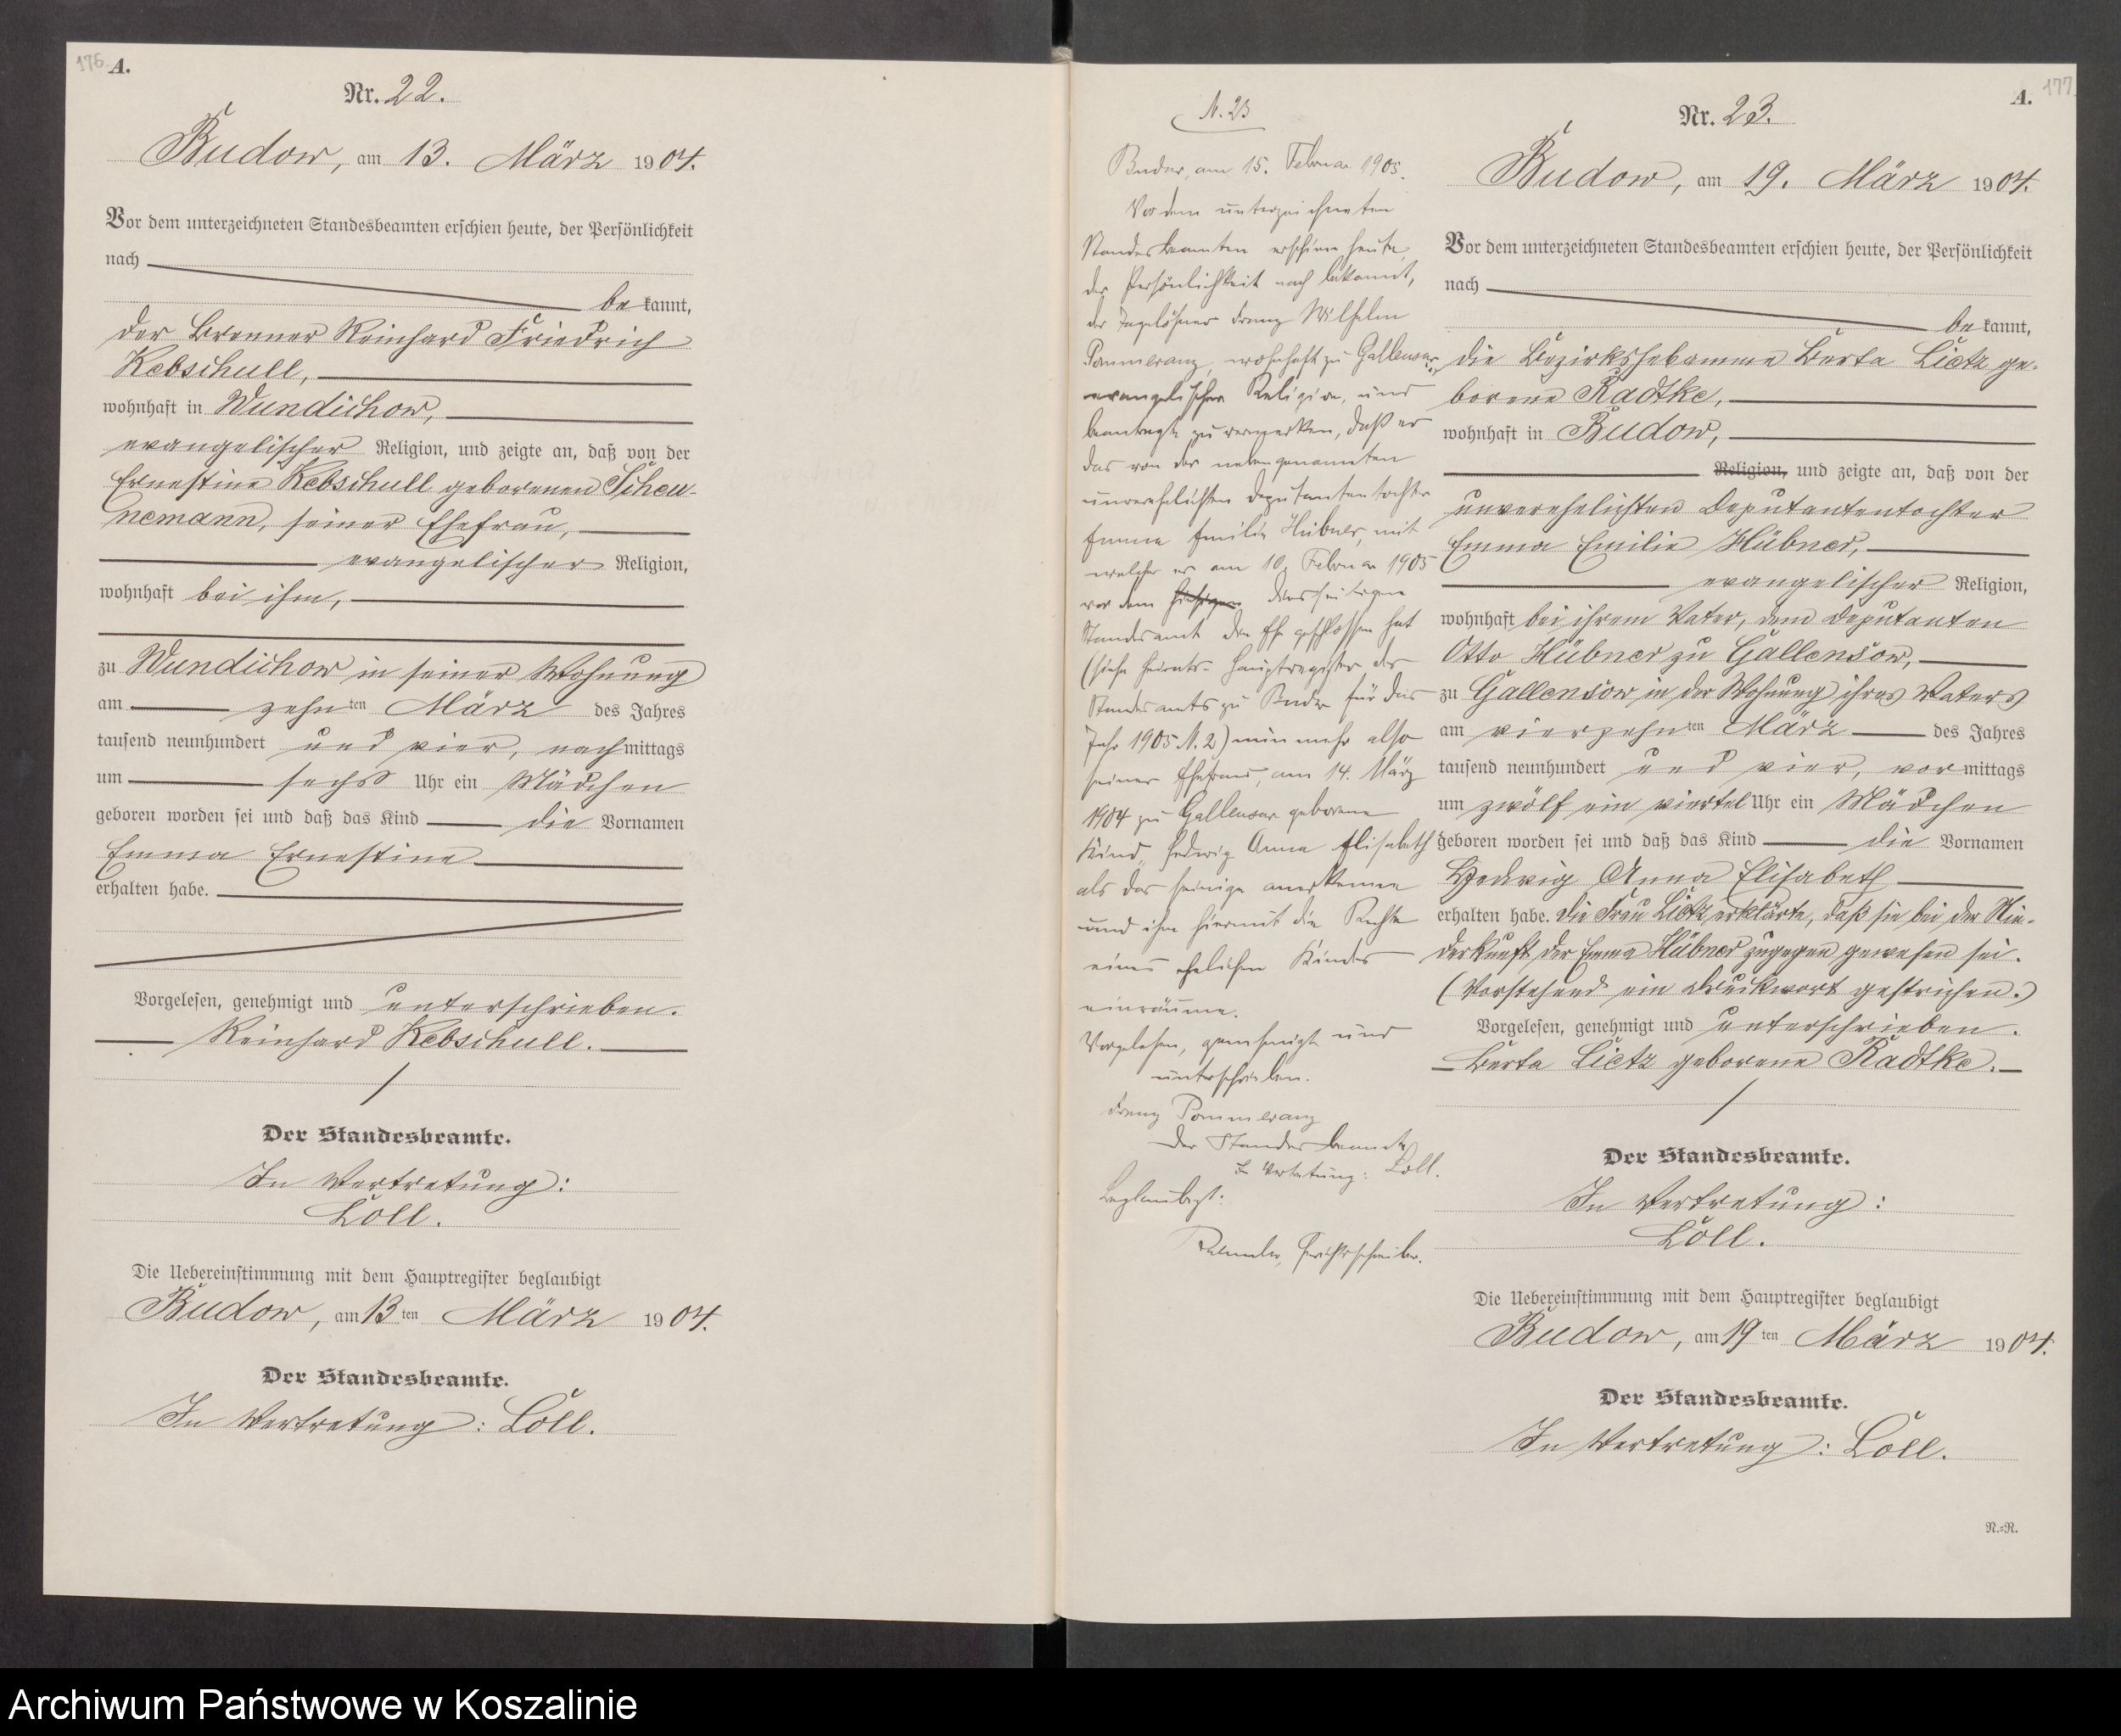 176.
A.
Nr. 22.
Budow, am 13. März 1904.
Vor dem unterzeichneten Standesbeamten erschien heute, der Persönlichkeit
nach
bekannt,
der Brenner Reinhard Friedrich
Kebschull,
wohnhaft in Wundichow,
evangelischer Religion, und zeigte an, daß von der
Ernestine Kebschull geborenen Scheu-
nemann, seiner Ehefrau,
evangelischer Religion,
wohnhaft bei ihm,
zu Wundichow in seiner Wohnung
am zehnten März des Jahres
tausend neunhundert und vier, nachmittags
um sechs Uhr ein Mädchen
geboren worden sei und daß das Kind die Vornamen
Emma Ernestine
erhalten habe.
Vorgelesen, genehmigt und unterschrieben.
Reinhard Kebschull.
Der Standesbeamte.
In Vertretung:
Loll.
Die Uebereinstimmung mit dem Hauptregister beglaubigt
Budow, am 13ten März 1904.
Der Standesbeamte.
In Vertretung: Loll.
N. 23
Budow, am 15. Februar 1905.
Vor dem unterzeichneten
Standesbeamten erschien heute,
der Persönlichkeit nach bekannt,
der Tagelöhner Franz Wilhelm
Pommeranz, wohnhaft zu Gallensow,
evangelischer Religion, und
beantragte zu vermerken, daß er
das von der nebengenannten
unverehelichten Deputantentochter
Emma Emilie Hübner, mit
welcher er am 10. Februar 1905
vor dem hiesigen diesseitigen
Standesamt die Ehe geschlossen hat
(siehe Heirats-Hauptregister des
Standesamts zu Budow für das
Jahr 1905 N. 2) nunmehr also
seiner Ehefrau, am 14. März
1904 zu Gallensow geborene
Kind, Hedwig Anna Elisabeth
als das seinige anerkenne
und ihm hiermit die Rechte
eines ehelichen Kindes
einräume.
Vorgelesen, genehmigt und
unterschrieben.
Franz Pommeranz
Der Standesbeamte
In Vertretung: Loll.
Beglaubigt:
Gerichtsschreiber.
177.
A.
Nr. 23.
Budow, am 19. März 1904.
Vor dem unterzeichneten Standesbeamten erschien heute, der Persönlichkeit
nach
bekannt,
die Bezirkshebamme Berta Lietz ge-
borene Radtke,
wohnhaft in Budow,
Religion, und zeigte an, daß von der
unverehelichten Deputantentochter
Emma Emilie Hübner,
evangelischer Religion,
wohnhaft bei ihrem Vater, dem Deputanten
Otto Hübner zu Gallensow,
zu Gallensow in der Wohnung ihres Vaters
am vierzehnten März des Jahres
tausend neunhundert und vier, vormittags
um zwölf ein viertel Uhr ein Mädchen
geboren worden sei und daß das Kind die Vornamen
Hedwig Anna Elisabeth
erhalten habe. Die Frau Lietz erklärte, daß sie bei der Nie-
derkunft der Emma Hübner zugegen gewesen sei.
(Vorstehend ein Druckwort gestrichen.)
Vorgelesen, genehmigt und unterschrieben.
Berta Lietz geborene Radtke.
Der Standesbeamte.
In Vertretung:
Loll.
Die Uebereinstimmung mit dem Hauptregister beglaubigt
Budow, am 19ten März 1904.
Der Standesbeamte.
In Vertretung: Loll.
N.=R.
Archiwum Państwowe w Koszalinie